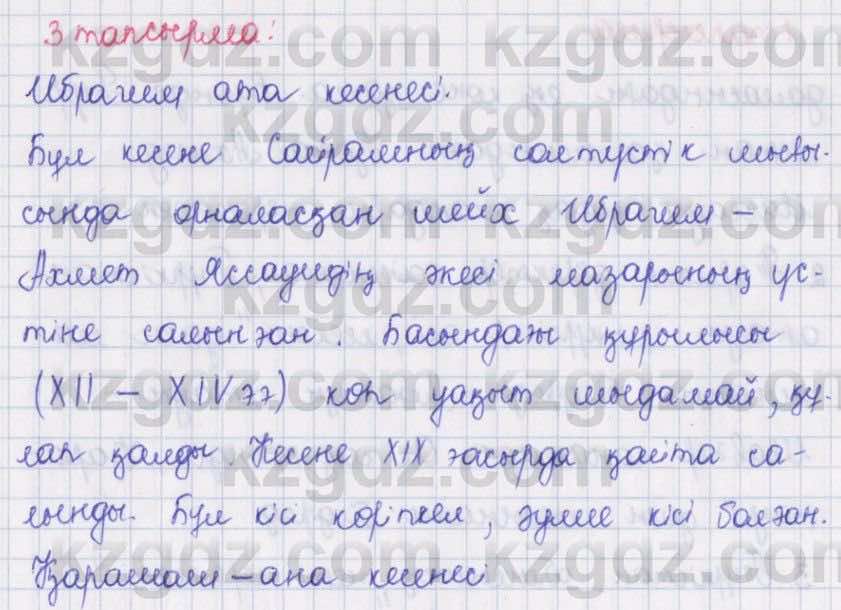 3 тапсырма:
Ибрагим ата кесенесі.
Бұл кесене Сайрамның солтүстік шығы-
сында орналасқан шейх Ибрагим –
Ахмет Яссауидің әкесі мазарының үс-
тіне салынған. Басындағы құрылысы
(XII – XIVғғ) көп уақыт шыдамай, құ-
лап қалды. Кесене XIX ғасырда қайта са-
лынды. Бұл кісі көріпкел, әулие кісі болған.
Қарашаш – ана кесенесі
kzgdz.com